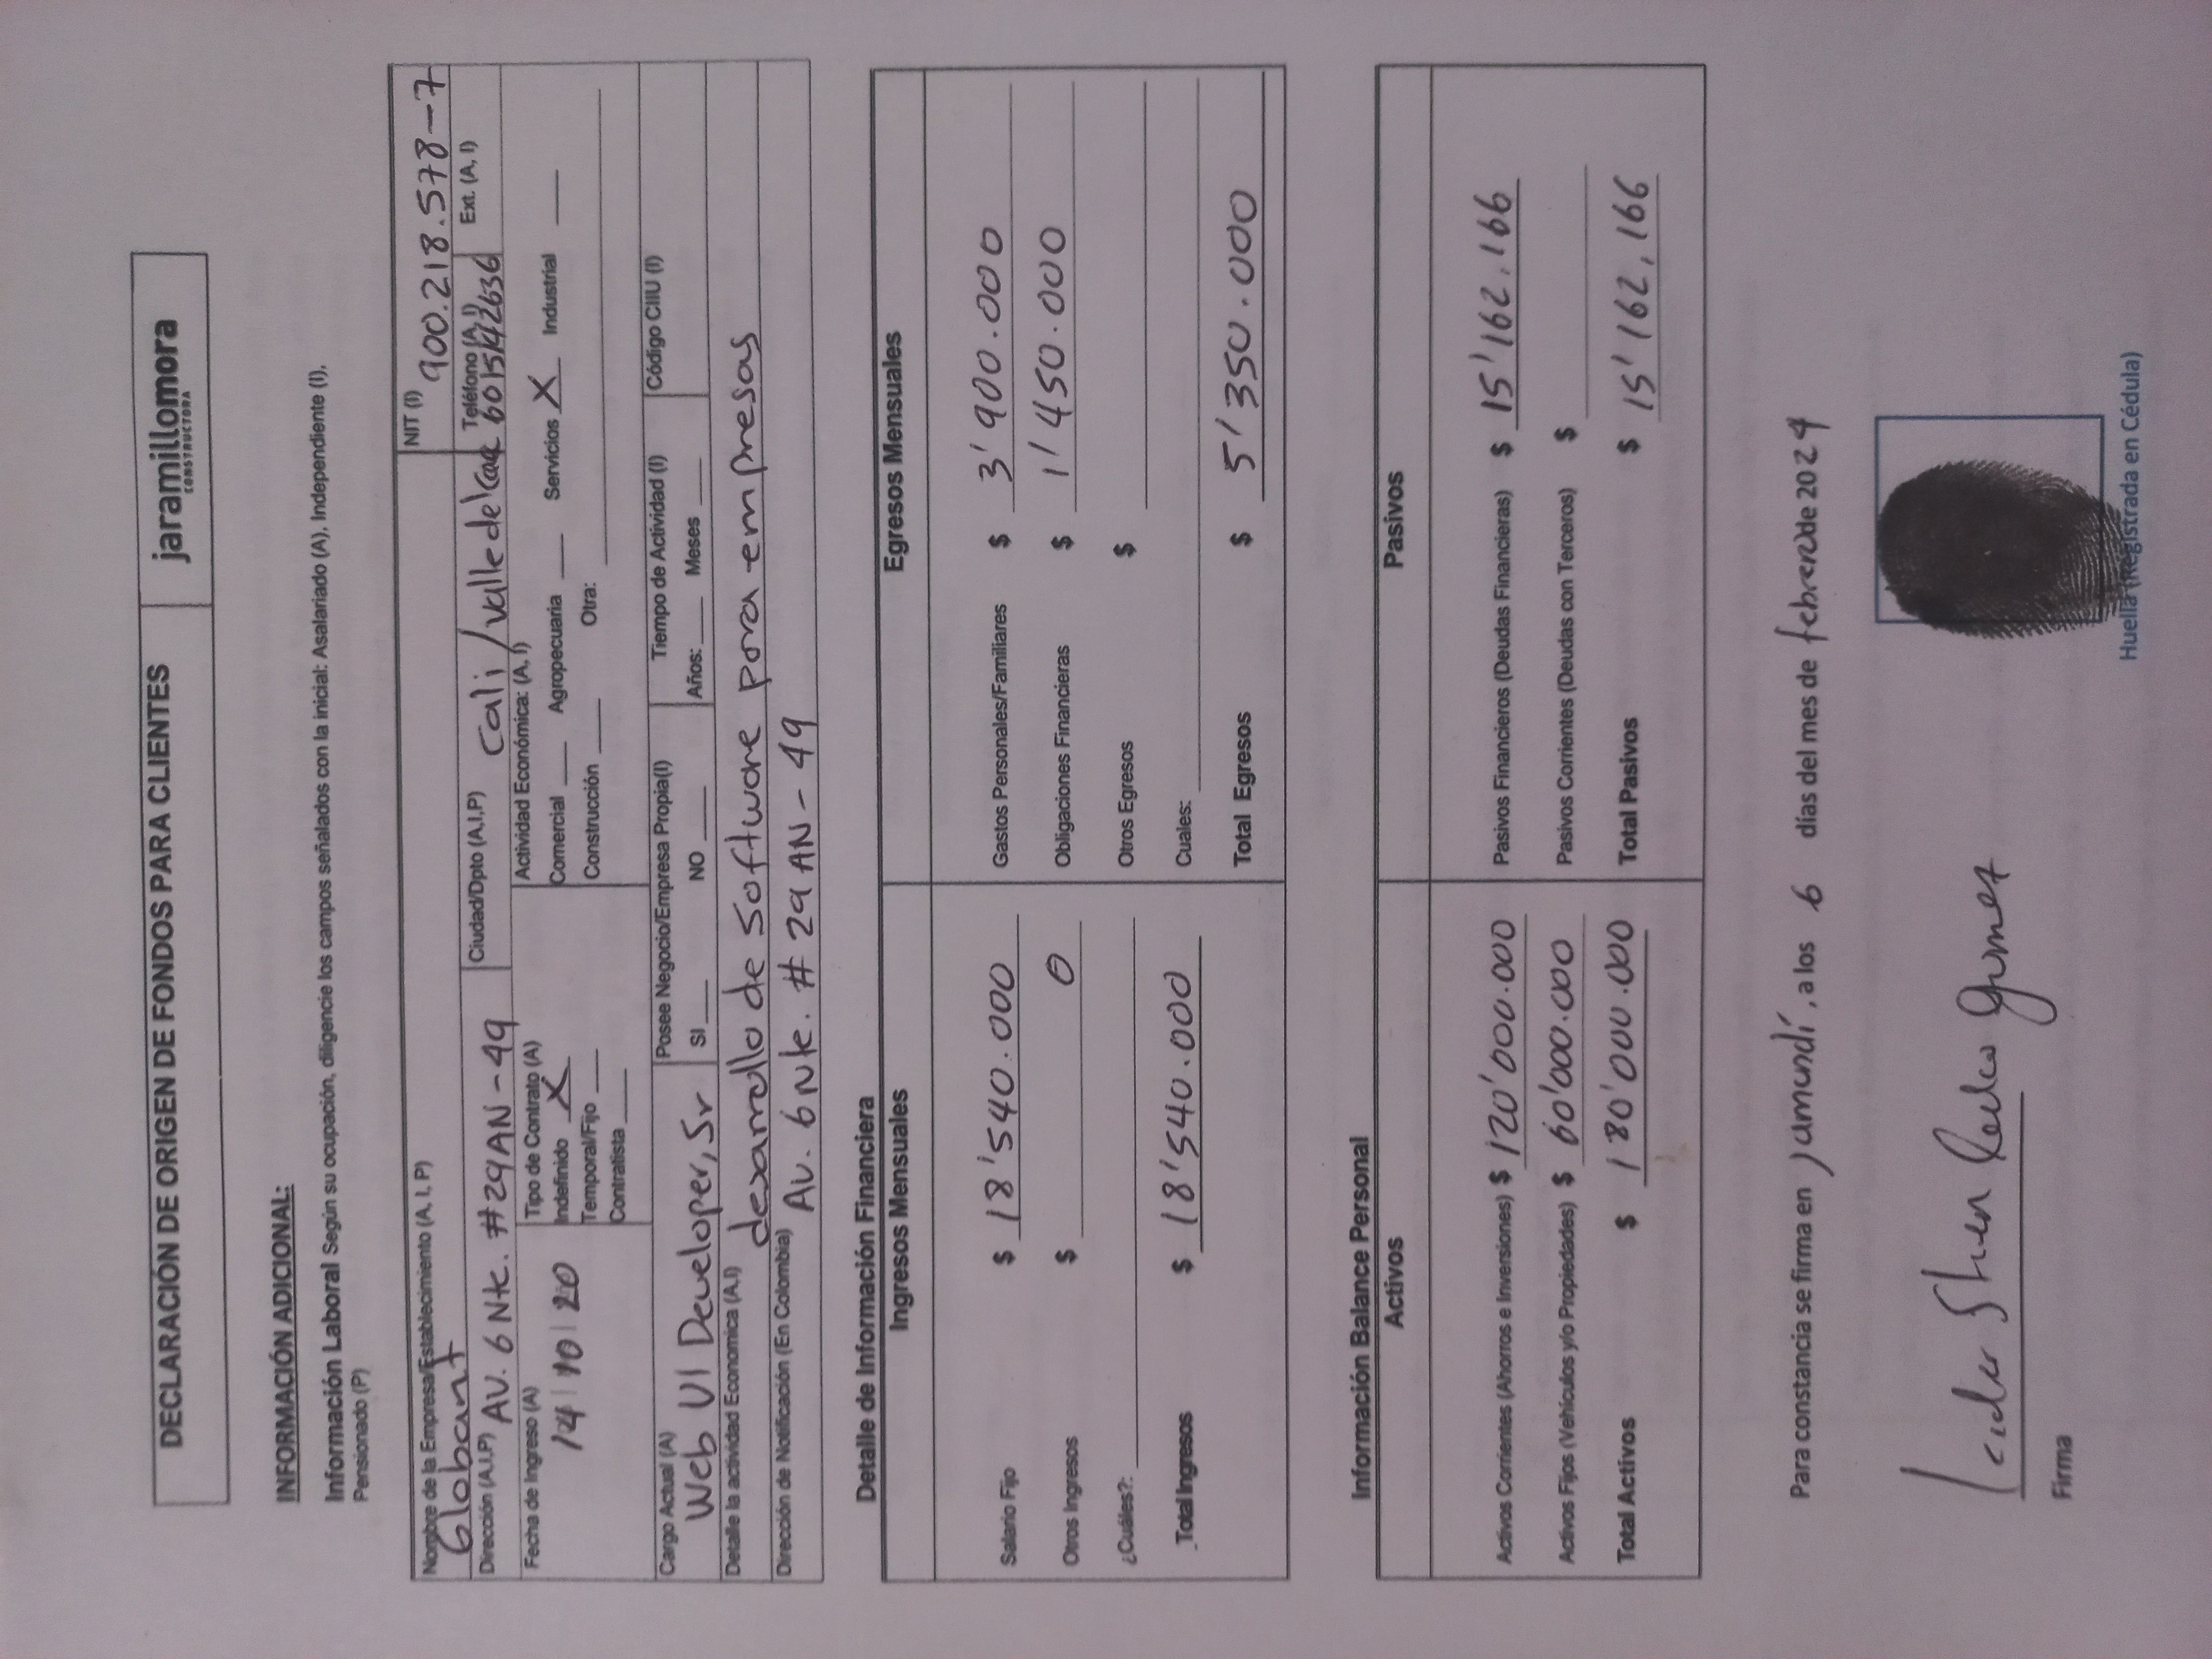 DECLARACIÓN DE ORIGEN DE FONDOS PARA CLIENTES
jaramillomora
CONSTRUCTORA
INFORMACIÓN ADICIONAL:
Información Laboral Según su ocupación, diligencie los campos señalados con la inicial: Asalariado (A), Independiente (I),
Pensionado (P)
Nombre de la Empresa/Establecimiento (A, I, P) Globant
NIT (I) 900.218.578-7
Dirección (A,I,P) AV. 6 Nte. #29AN-49
Ciudad/Dpto (A,I,P) Cali/Valle del
Teléfono (A, I) 6015142636
Ext. (A, I)
Fecha de Ingreso (A) 14 | 10 | 20
Tipo de Contrato (A)
Indefinido X
Temporal/Fijo ____
Contratista ____
Actividad Económica: (A, I)
Comercial ____ Agropecuaria ____ Servicios X Industrial ____
Construcción ____ Otra: ____
Cargo Actual (A) Web UI Developer, Sr
Posee Negocio/Empresa Propia(I)
SI ____ NO ____
Tiempo de Actividad (I)
Años: ____ Meses ____
Código CIIU (I)
Detalle la actividad Economica (A,I) desarrollo de software para empresas
Dirección de Notificación (En Colombia) AV. 6 Nte. # 29 AN - 49
Detalle de Información Financiera
Ingresos Mensuales
Salario Fijo $ 18'540.000
Otros Ingresos $ 0
¿Cuáles?: ____
Total Ingresos $ 18'540.000
Egresos Mensuales
Gastos Personales/Familiares $ 3'900.000
Obligaciones Financieras $ 1'450.000
Otros Egresos $ ____
Cuales: ____
Total Egresos $ 5'350.000
Información Balance Personal
Activos
Activos Corrientes (Ahorros e Inversiones) $ 120'000.000
Activos Fijos (Vehículos y/o Propiedades) $ 60'000.000
Total Activos $ 180'000.000
Pasivos
Pasivos Financieros (Deudas Financieras) $ 15'162,166
Pasivos Corrientes (Deudas con Terceros) $ ____
Total Pasivos $ 15'162,166
Para constancia se firma en Jamundí, a los 6 días del mes de febrero de 2024
Gomez
Firma
Huella (Registrada en Cédula)